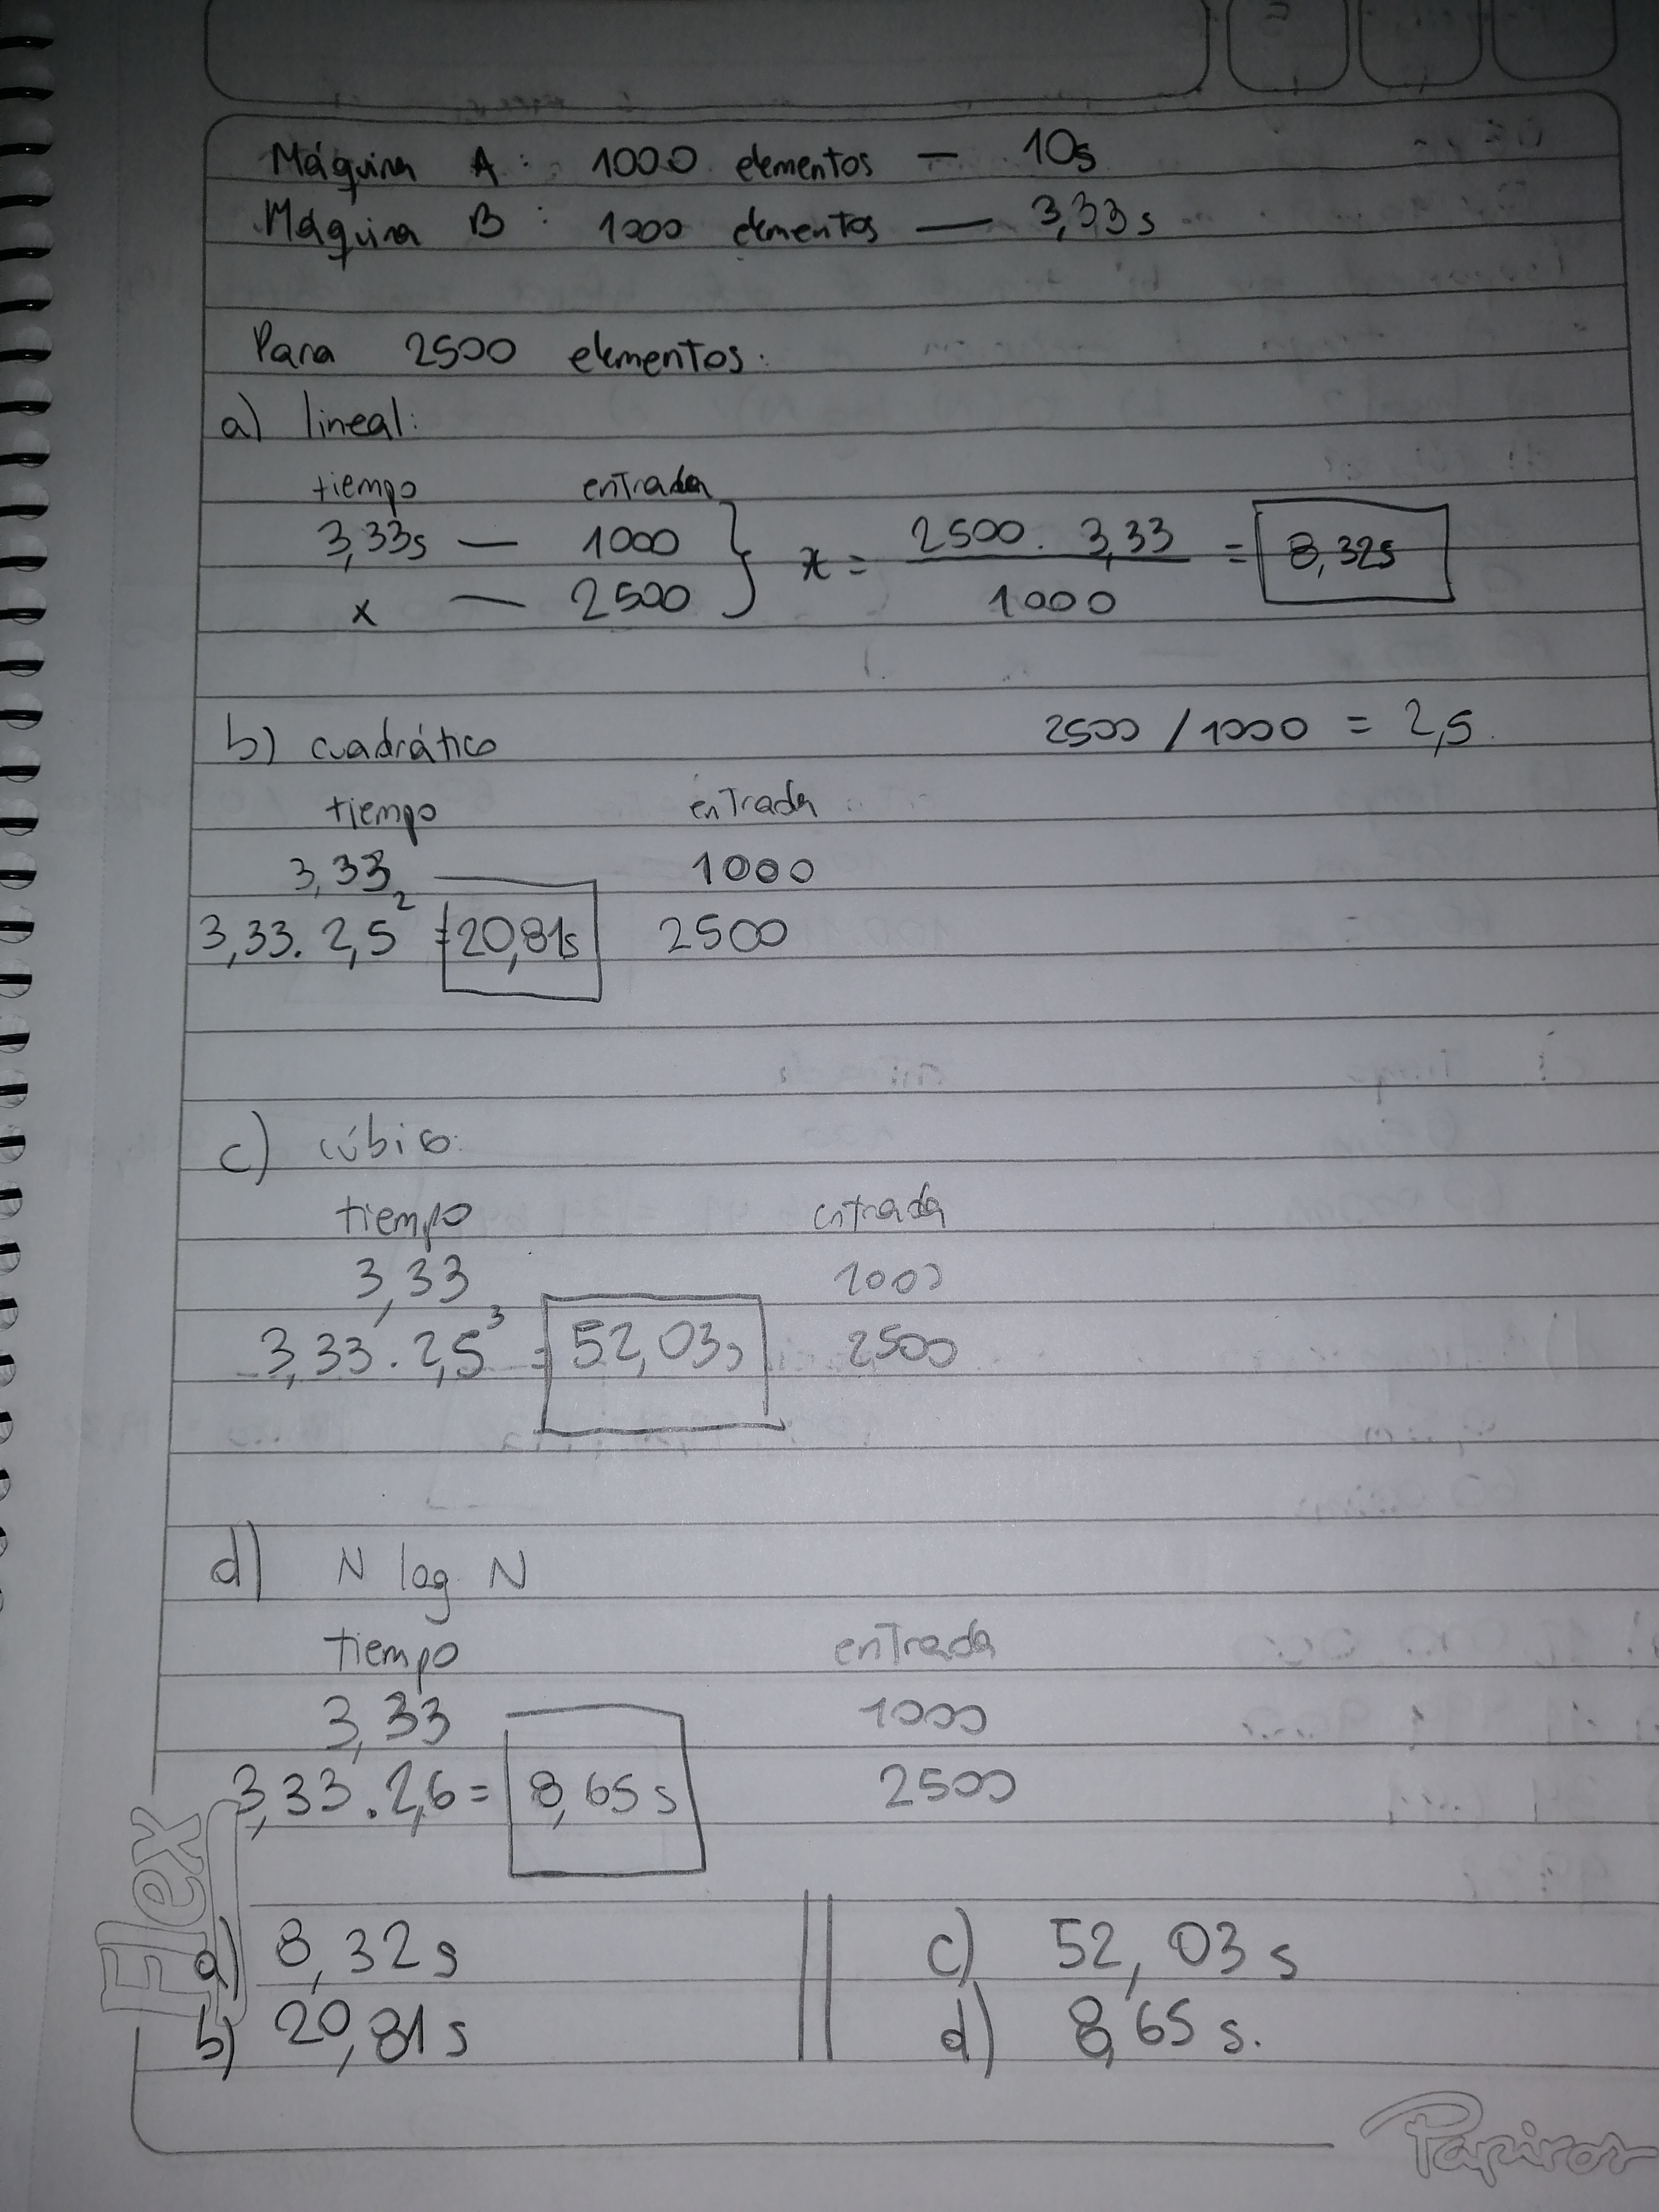 Máquina A: 1000 elementos — 10s
Máquina B: 1000 elementos — 3,33s
Para 2500 elementos:
a) lineal:
tiempo entrada
3,33s — 1000
x — 2500
x = 2500 . 3,33 / 1000 = 8,32s
b) cuadrático 2500 / 1000 = 2,5
tiempo entrada
3,33 — 1000
3,33 . 2,5² = 20,81s 2500
c) cúbico:
tiempo entrada
3,33 1000
3,33 . 2,5³ = 52,03s 2500
d) N log N
tiempo entrada
3,33 — 1000
3,33 . 2,6 = 8,65s 2500
a) 8,32s c) 52,03s
b) 20,81s d) 8,65s.
Flex
Papiros